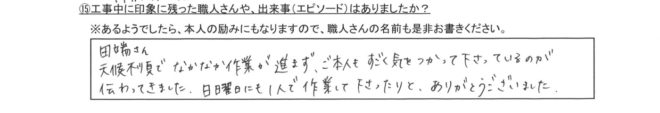 ⑮工事中に印象に残った職人さんや、出来事（エピソード）はありましたか？
※あるようでしたら、本人の励みにもなりますので、職人さんの名前も是非お書きください。
田端さん
天候不順でなかなか作業が進まず、ご本人もすごく気をつかって下さっているのが
伝わってきました。日曜日にも1人で作業して下さったりと、ありがとうございました。